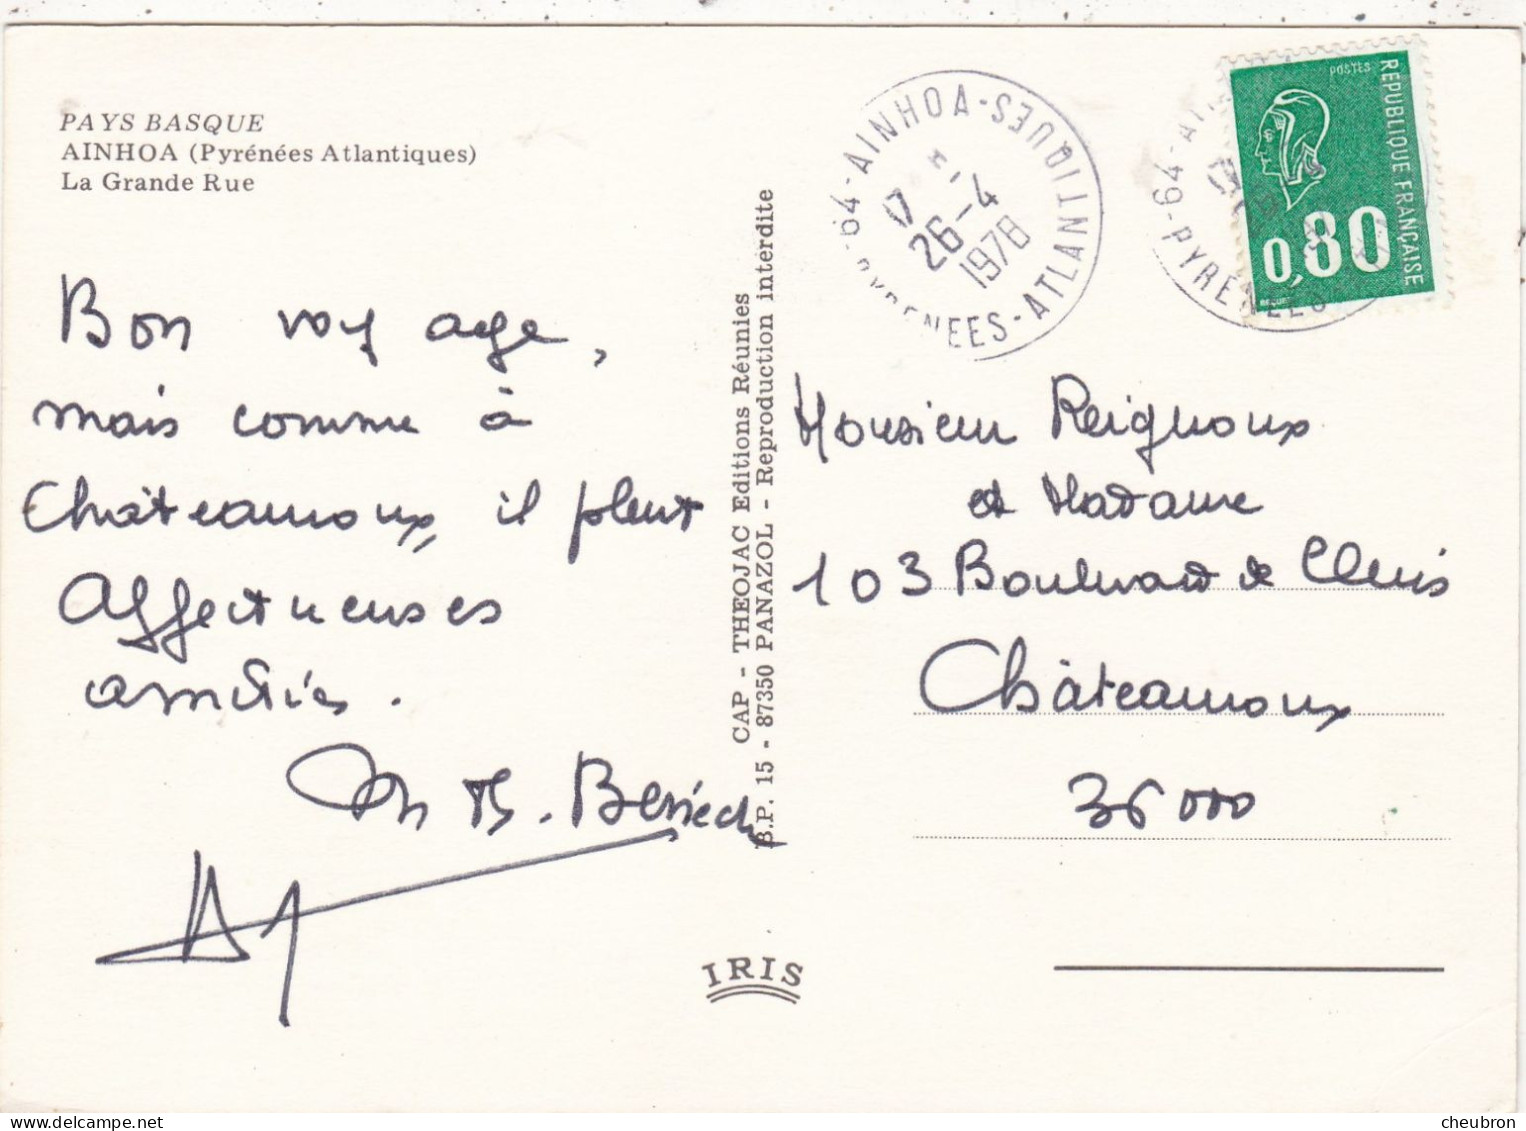 PAYS BASQUE
AINHOA (Pyrénées Atlantiques)
La Grande Rue
Bon voyage,
mais comme à
Châteauroux, il pleut
Affectueuses
amitiés.
CAP - THEOJAC Editions Réunies
B.P. 15 - 87350 PANAZOL - Reproduction interdite
IRIS
64-AINHOA-PYRENEES-ATLANTIQUES
17
26-4
1978
64-AI
PYRENEES
POSTES
REPUBLIQUE FRANÇAISE
0,80
BEQUET
Monsieur Reignoux
et Madame
103 Boulevard de Cluis
Châteauroux
36000
cheubron